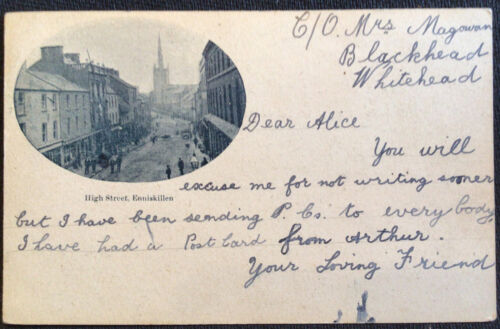 C/O. Mrs Magowan
Blackhead
Whitehead
Dear Alice
You will
excuse me for not writing sooner
but I have been sending P. Cs. to every body
I have had a Post Card from Arthur.
Your Loving Friend
High Street, Enniskillen